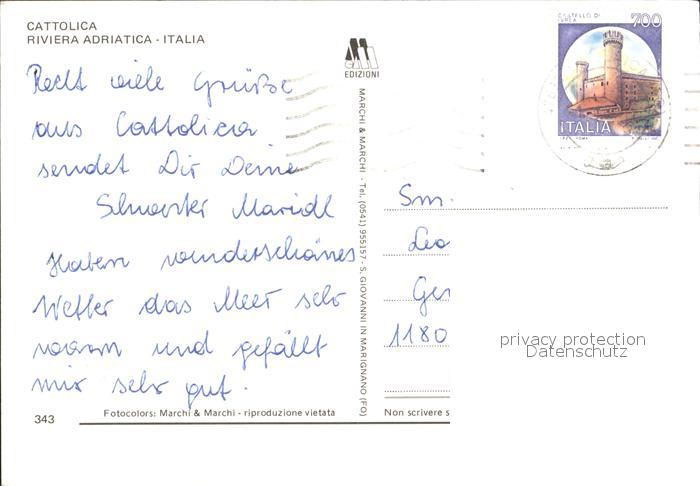 CATTOLICA
RIVIERA ADRIATICA - ITALIA
EDIZIONI
CASTELLO DI
IVREA
700
ITALIA
Recht viele Grüße
aus Cattolica
sendet Dir Deine
Schwester Maridl
Haben wunderschönes
Wetter das Meer sehr
warm und gefällt
mir sehr gut.
MARCHI & MARCHI - Tel. (0541) 955157 - S. GIOVANNI IN MARIGNANO (FO)
Leo
Ger
1180
privacy protection
Datenschutz
343
Fotocolors: Marchi & Marchi - riproduzione vietata
Non scrivere s